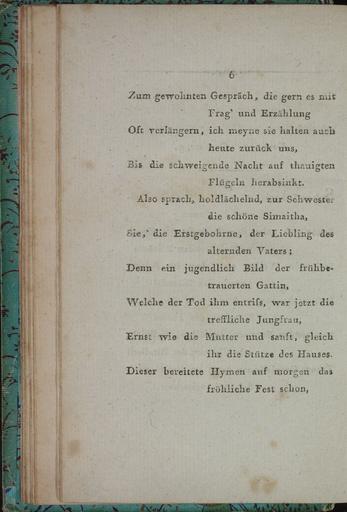 6
Zum gewohnten Gespräch, die gern es mit
Frag' und Erzählung
Oft verlängern, ich meyne sie halten auch
heute zurück uns,
Bis die schweigende Nacht auf thauigten
Flügeln herabsinkt.
Also sprach, holdlächelnd, zur Schwester
die schöne Simaitha,
Sie, die Erstgebohrne, der Liebling des
alternden Vaters;
Denn ein jugendlich Bild der frühbe-
trauerten Gattin,
Welche der Tod ihm entriſs, war jetzt die
treffliche Jungfrau,
Ernst wie die Mutter und sanft, gleich
ihr die Stütze des Hauses.
Dieser bereitete Hymen auf morgen das
fröhliche Fest schon,